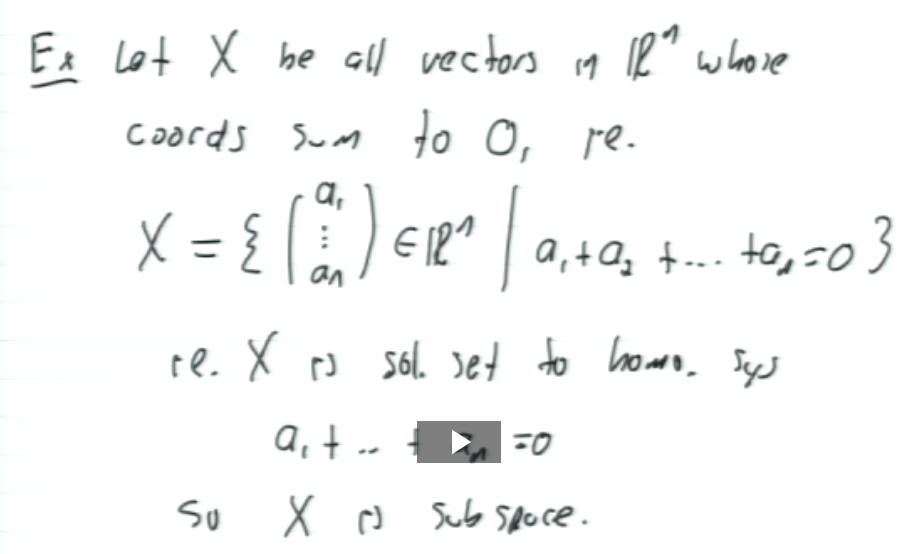 Ex Let X be all vectors in ℝⁿ whose
coords sum to 0, ie.
X = { (a₁ ⋮ aₙ) ∈ ℝⁿ | a₁+a₂ + ... +aₙ=0 }
ie. X is sol. set to homo. sys
a₁ + .. + aₙ =0
So X is subspace.